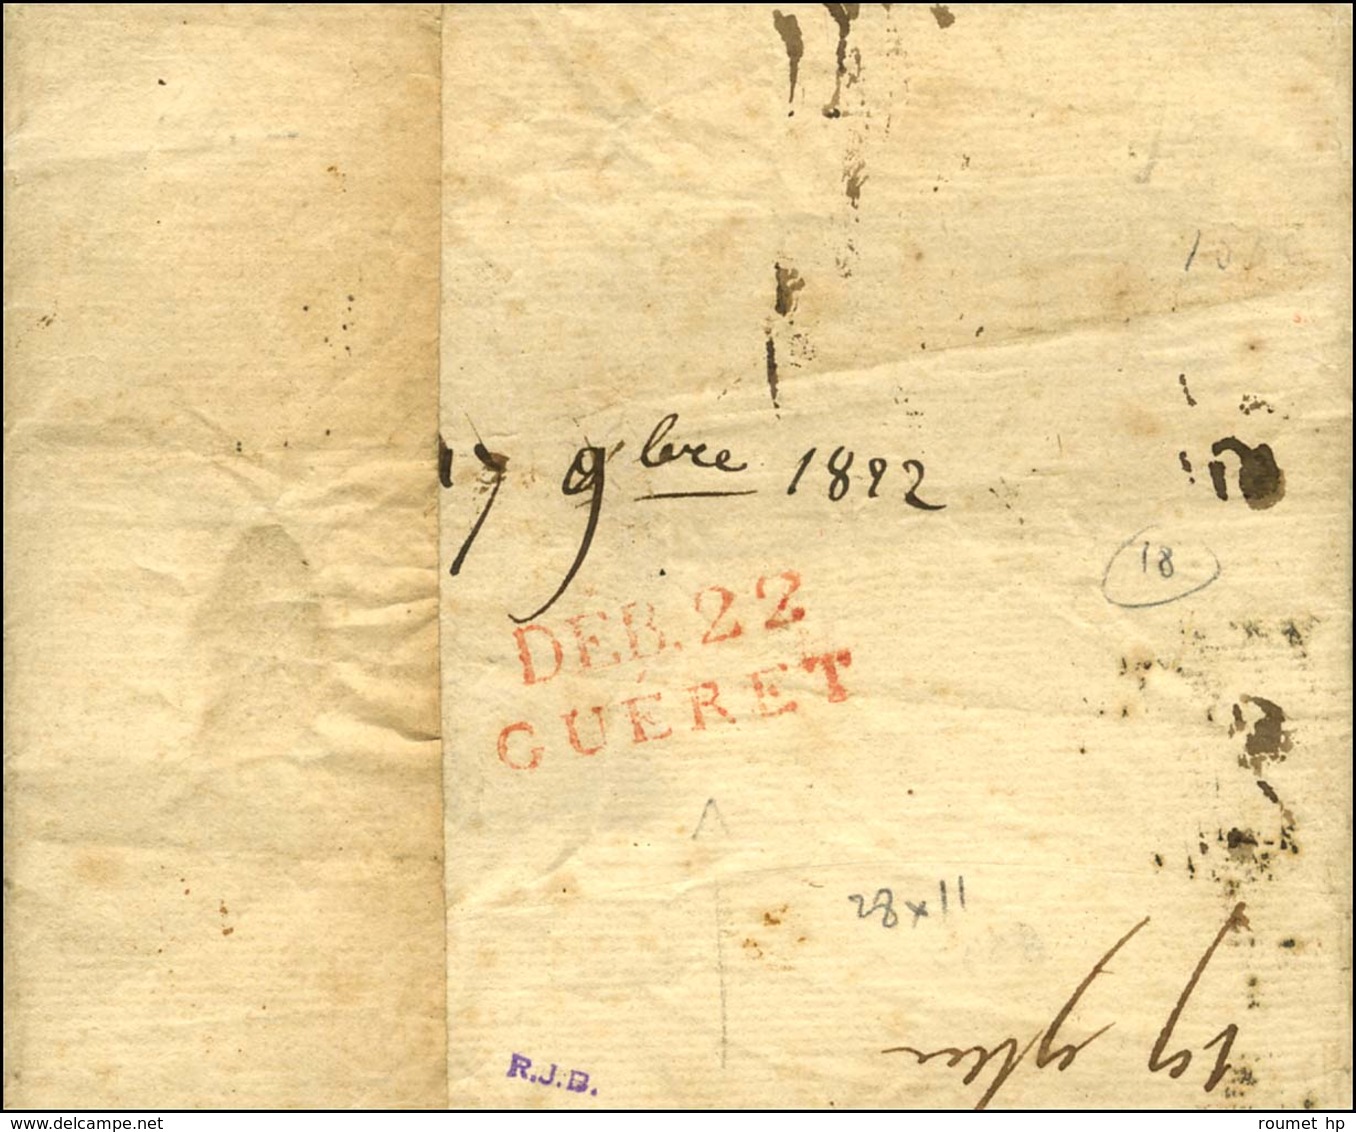 17 9bre 1822
18
DÉB. 22
GUÉRET
28x11
19 9bre
R.J.B.
www.delcampe.net
roumet hp